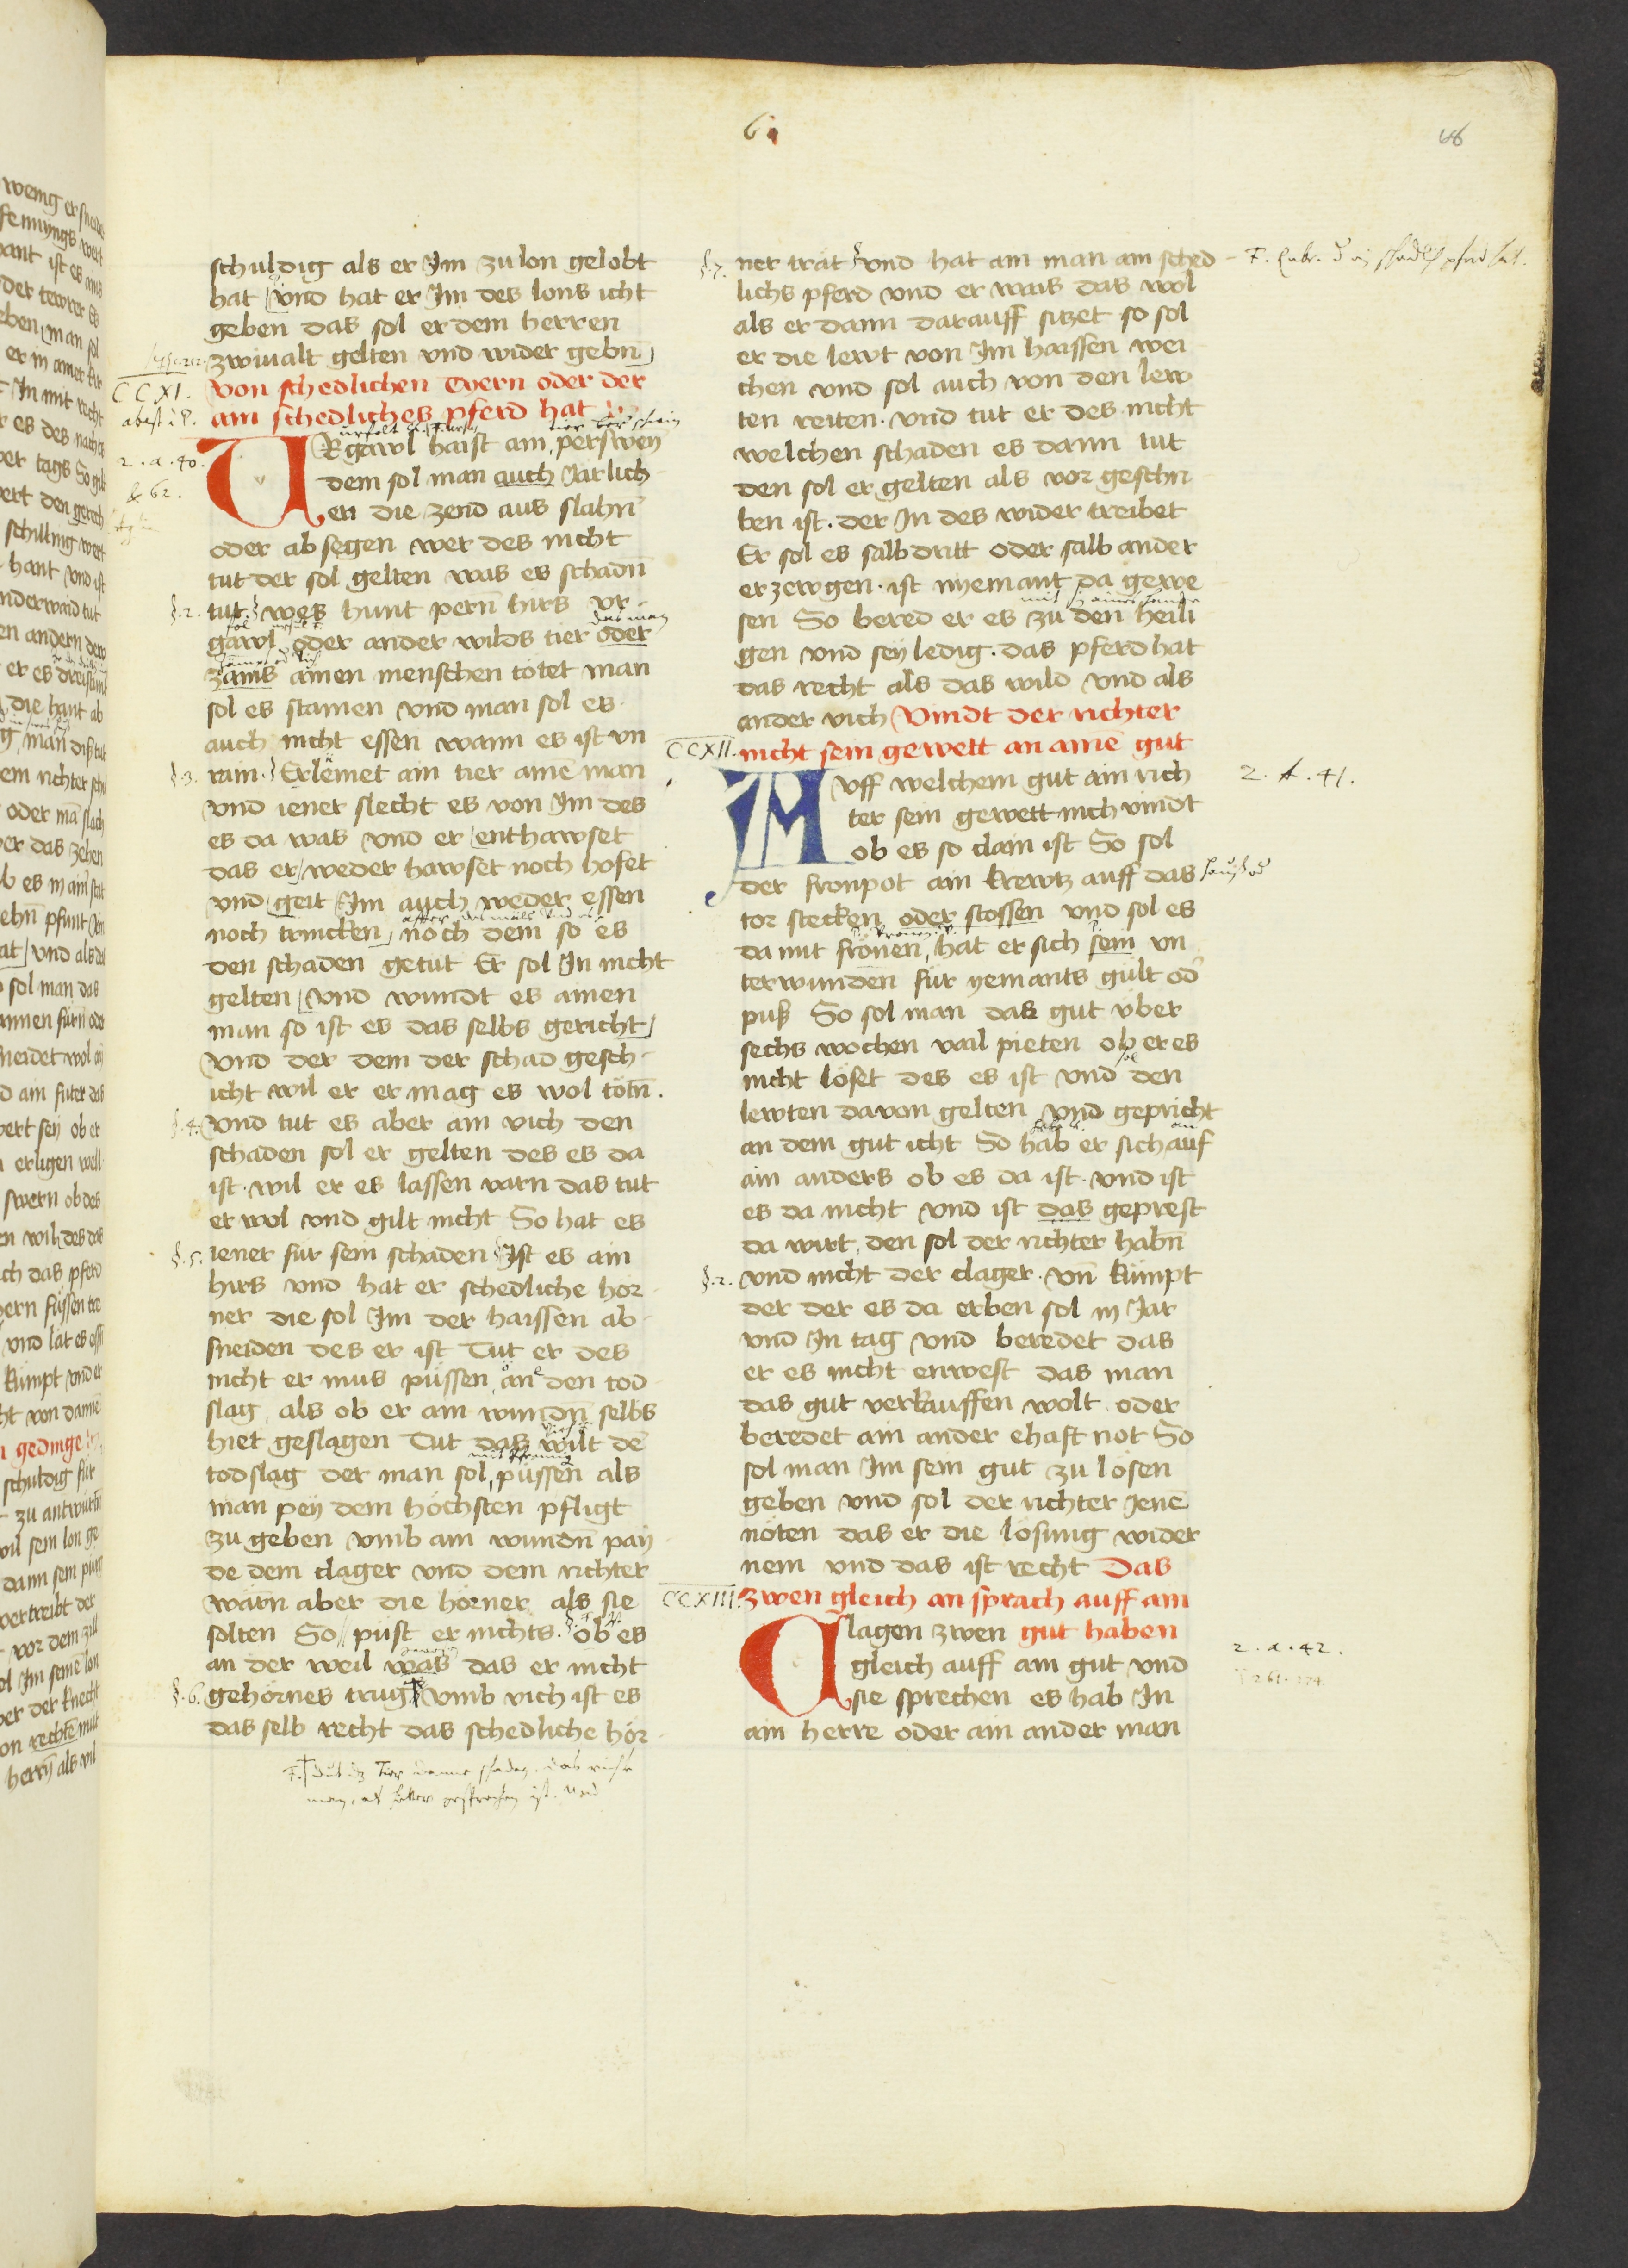 schuldig als er Im zu lon gelobt
hat vnd hat er Im des lons icht
geben das sol er dem herren
zwiualt gelten vnd wider gebn̄
CCXI. Von schedlichen tyern oder der
ain schedliches pferd hat
2. a. 40. VRgawl haist ain perswein
& 62. dem sol man auch Jarlich
en die zend aus slahn̄
oder absegen wer des nicht
tut der sol gelten was es schadn̄
§. 2. tut. wes hunt pern̄ hirs vr
gawl oder ander wilds tier oder
zams ainen menschen totet man
sol es stainen vnd man sol es
auch nicht essen wann es ist vn
§. 3. rain. Erlemet ain tier aine man
vnd iener slecht es von Im des
es da was vnd er enthawset
das er weder hawset noch hofet
vnd geit Im auch weder essen
noch trincken noch dem so es
den schaden getut Er sol In nicht
gelten vnd wundt es ainen
man so ist es das selbs gericht
vnd der dem der schad gesch
icht wil er er mag es wol totn̄.
§. 4. vnd tut es aber ain vich den
schaden sol er gelten des es da
ist. wil er es lassen varn das tut
er wol vnd gilt nicht So hat es
§. 5. iener fur sein schaden Ist es ain
hirs vnd hat er schedliche hor
ner die sol Im der haissen ab
sneiden des er ist Tut er des
nicht er mus pussen an den tod
slag als ob er ain wundn̄ selbs
hiet geslagen Tut das wilt de
todslag der man sol pussen als
man pey dem hochsten pfligt
zu geben vmb ain wundn̄ pay
de dem clager vnd dem richter
warn aber die horner als sie
solten So pust er nichts. ob es
an der weil was das er nicht
§. 6. gehornes trug vmb vich ist es
das selb recht das schedliche hor
§. 7. ner trat vnd hat ain man ain sched
lichs pferd vnd er wais das wol
als er dann darauff sitzet so sol
er die lewt von Im haissen wei
chen vnd sol auch von den lew
ten reiten. vnd tut er des nicht
welchen schaden es dann tut
den sol er gelten als vor geschri
ben ist. der In des wider treibet
Er sol es salbdritt oder salbander
erzewgen. ist nyemant da gewe
sen So bered er es zu den heili
gen vnd sey ledig. das pferd hat
das recht als das wild vnd als
ander vich Vindt der richter
CCXII. nicht sein gewett an aine gut
2. A. 41. AVff welchem gut ain rich
ter sein gewett nich vindt
ob es so clain ist So sol
der fronpot ain krewtz auff das
tor stecken oder stossen vnd sol es
damit fronen, hat er sich sein vn
terwunden fur yemants gult od
pus So sol man das gut vber
sechs wochen vail pieten ob er es
nicht loset des es ist vnd den
lewten davon gelten vnd gepricht
an dem gut icht So hab er sich auf
ain anders ob es da ist. vnd ist
es da nicht vnd ist das geprest
da wirt, den sol der richter habn̄
§. 2. vnd nicht der clager. vn̄ kumpt
der der es da erben sol in Jar
vnd In tag vnd beredet das
er es nicht enwest das man
das gut verkauffen wolt oder
beredet ain ander ehaft not So
sol man Im sein gut zu losen
geben vnd sol der richter Jene
noten das er die losung wider
nem vnd das ist recht Das
CCXIII. zwen gleich an sprach auff ain
Clagen zwen gut haben
2. a. 42. gleich auff ain gut vnd
sie sprechen es hab In
ain herre oder ain ander man